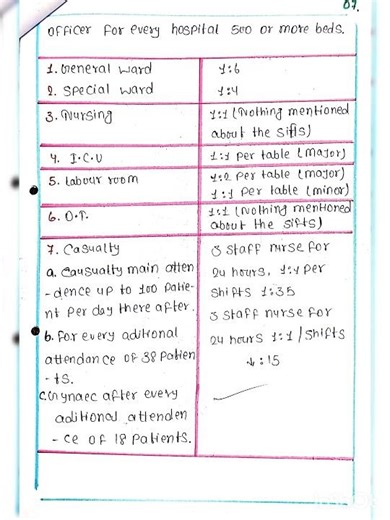 07.
officer for every hospital 500 or more beds.
1. General ward 1:6
2. Special ward 1:4
3. Nursing 1:1 (Nothing mentioned
about the sifts)
4. I.C.U 1:1 per table (major)
5. Labour room 1:2 per table (major)
1:1 per table (minor)
6. O.T. 1:1 (Nothing mentioned
about the sifts)
7. Casualty
a. causualty main atten
- dence up to 100 patie-
nt per day there after.
b. for every aditional
attendance of 38 patien
- ts.
c. Gynaec after every
aditional attenden
- ce of 18 patients.
3 staff nurse for
24 hours, 1:1 per
shifts 1:35
3 staff nurse for
24 hours 1:1 / shifts
1:15